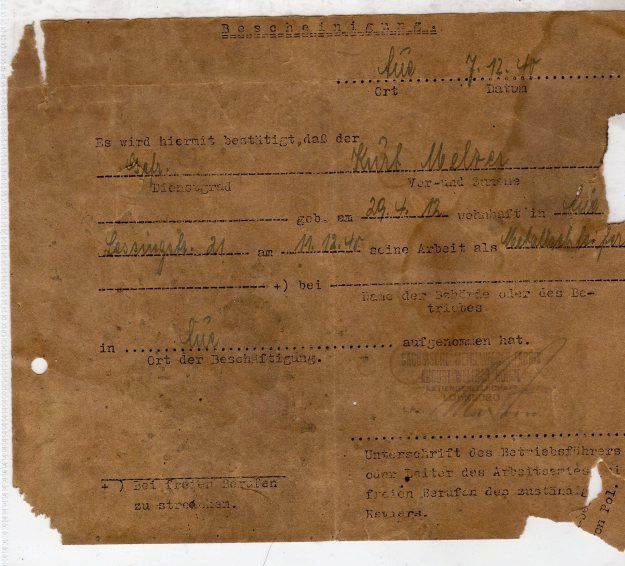 Bescheinigung.
Aue 7.12.40
Ort Datum
Es wird hiermit bestätigt, daß der
Kurt Melzer
Dienstgrad Vor-und Zuname
geb. am 29.4.12 wohnhaft in Aue
Lessingstr. 21 am 11.12.40 seine Arbeit als
+) bei
Name der Behörde oder des Be-
triebes
in Aue aufgenommen hat.
Ort der Beschäftigung.
Unterschrift des Betriebsführers
oder Leiter des Arbeitsamtes
+ ) Bei freien Berufen freien Berufen des zuständig
zu streichen. Reviers.
on Pol.